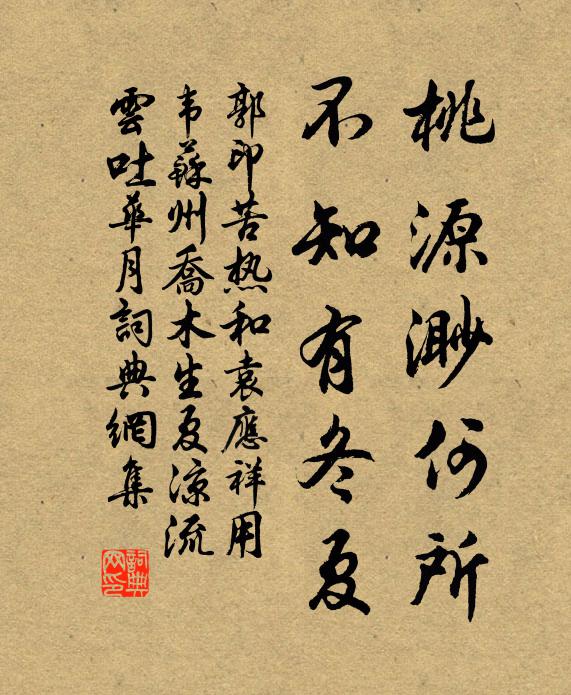 桃源渺何所
不知有冬夏
郭印苦热和袁應祥用
韦蘇州喬木生夏凉流
雲吐華月詞典網集
詞典网印